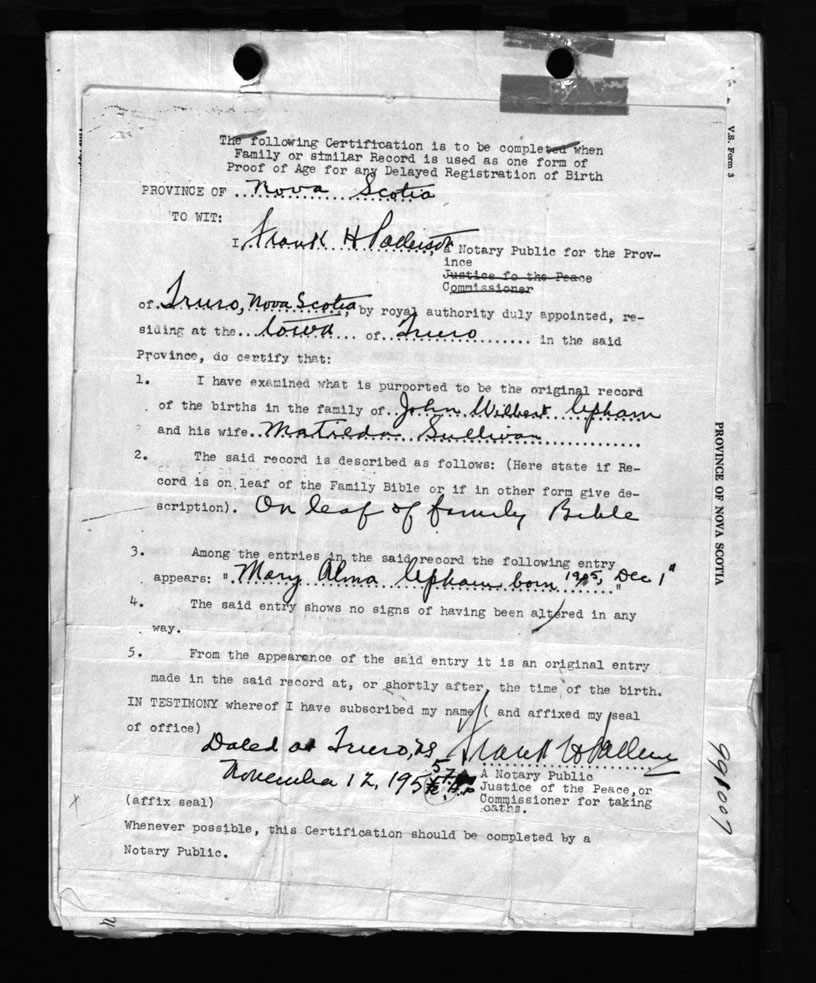 The following Certification is to be completed when
Family or similar Record is used as one form of
Proof of Age for any Delayed Registration of Birth
PROVINCE OF Nova Scotia
TO WIT:
I, Frank H Patterson a Notary Public for the Prov-
ince
Justice fo the Peace
Commissioner
of Truro, Nova Scotia, by royal authority duly appointed, re-
siding at the Town of Truro in the said
Province, do certify that:
1. I have examined what is purported to be the original record
of the births in the family of John Wilbert Upham
and his wife Matilda Sullivan
2. The said record is described as follows: (Here state if Re-
cord is on leaf of the Family Bible or if in other form give de-
scription). On leaf of family Bible
3. Among the entries in the said record the following entry
appears: " Mary Alma Upham born 1905, Dec 1"
4. The said entry shows no signs of having been altered in any
way.
5. From the appearance of the said entry it is an original entry
made in the said record at, or shortly after, the time of the birth.
IN TESTIMONY whereof I have subscribed my name ( and affixed my seal
of office)
Dated at Truro, NS Frank H Patterson
November 12, 195
A Notary Public
Justice of the Peace, or
Commissioner for taking
oaths.
(affix seal)
Whenever possible, this Certification should be completed by a
Notary Public.
V.S. Form 3
PROVINCE OF NOVA SCOTIA
991007